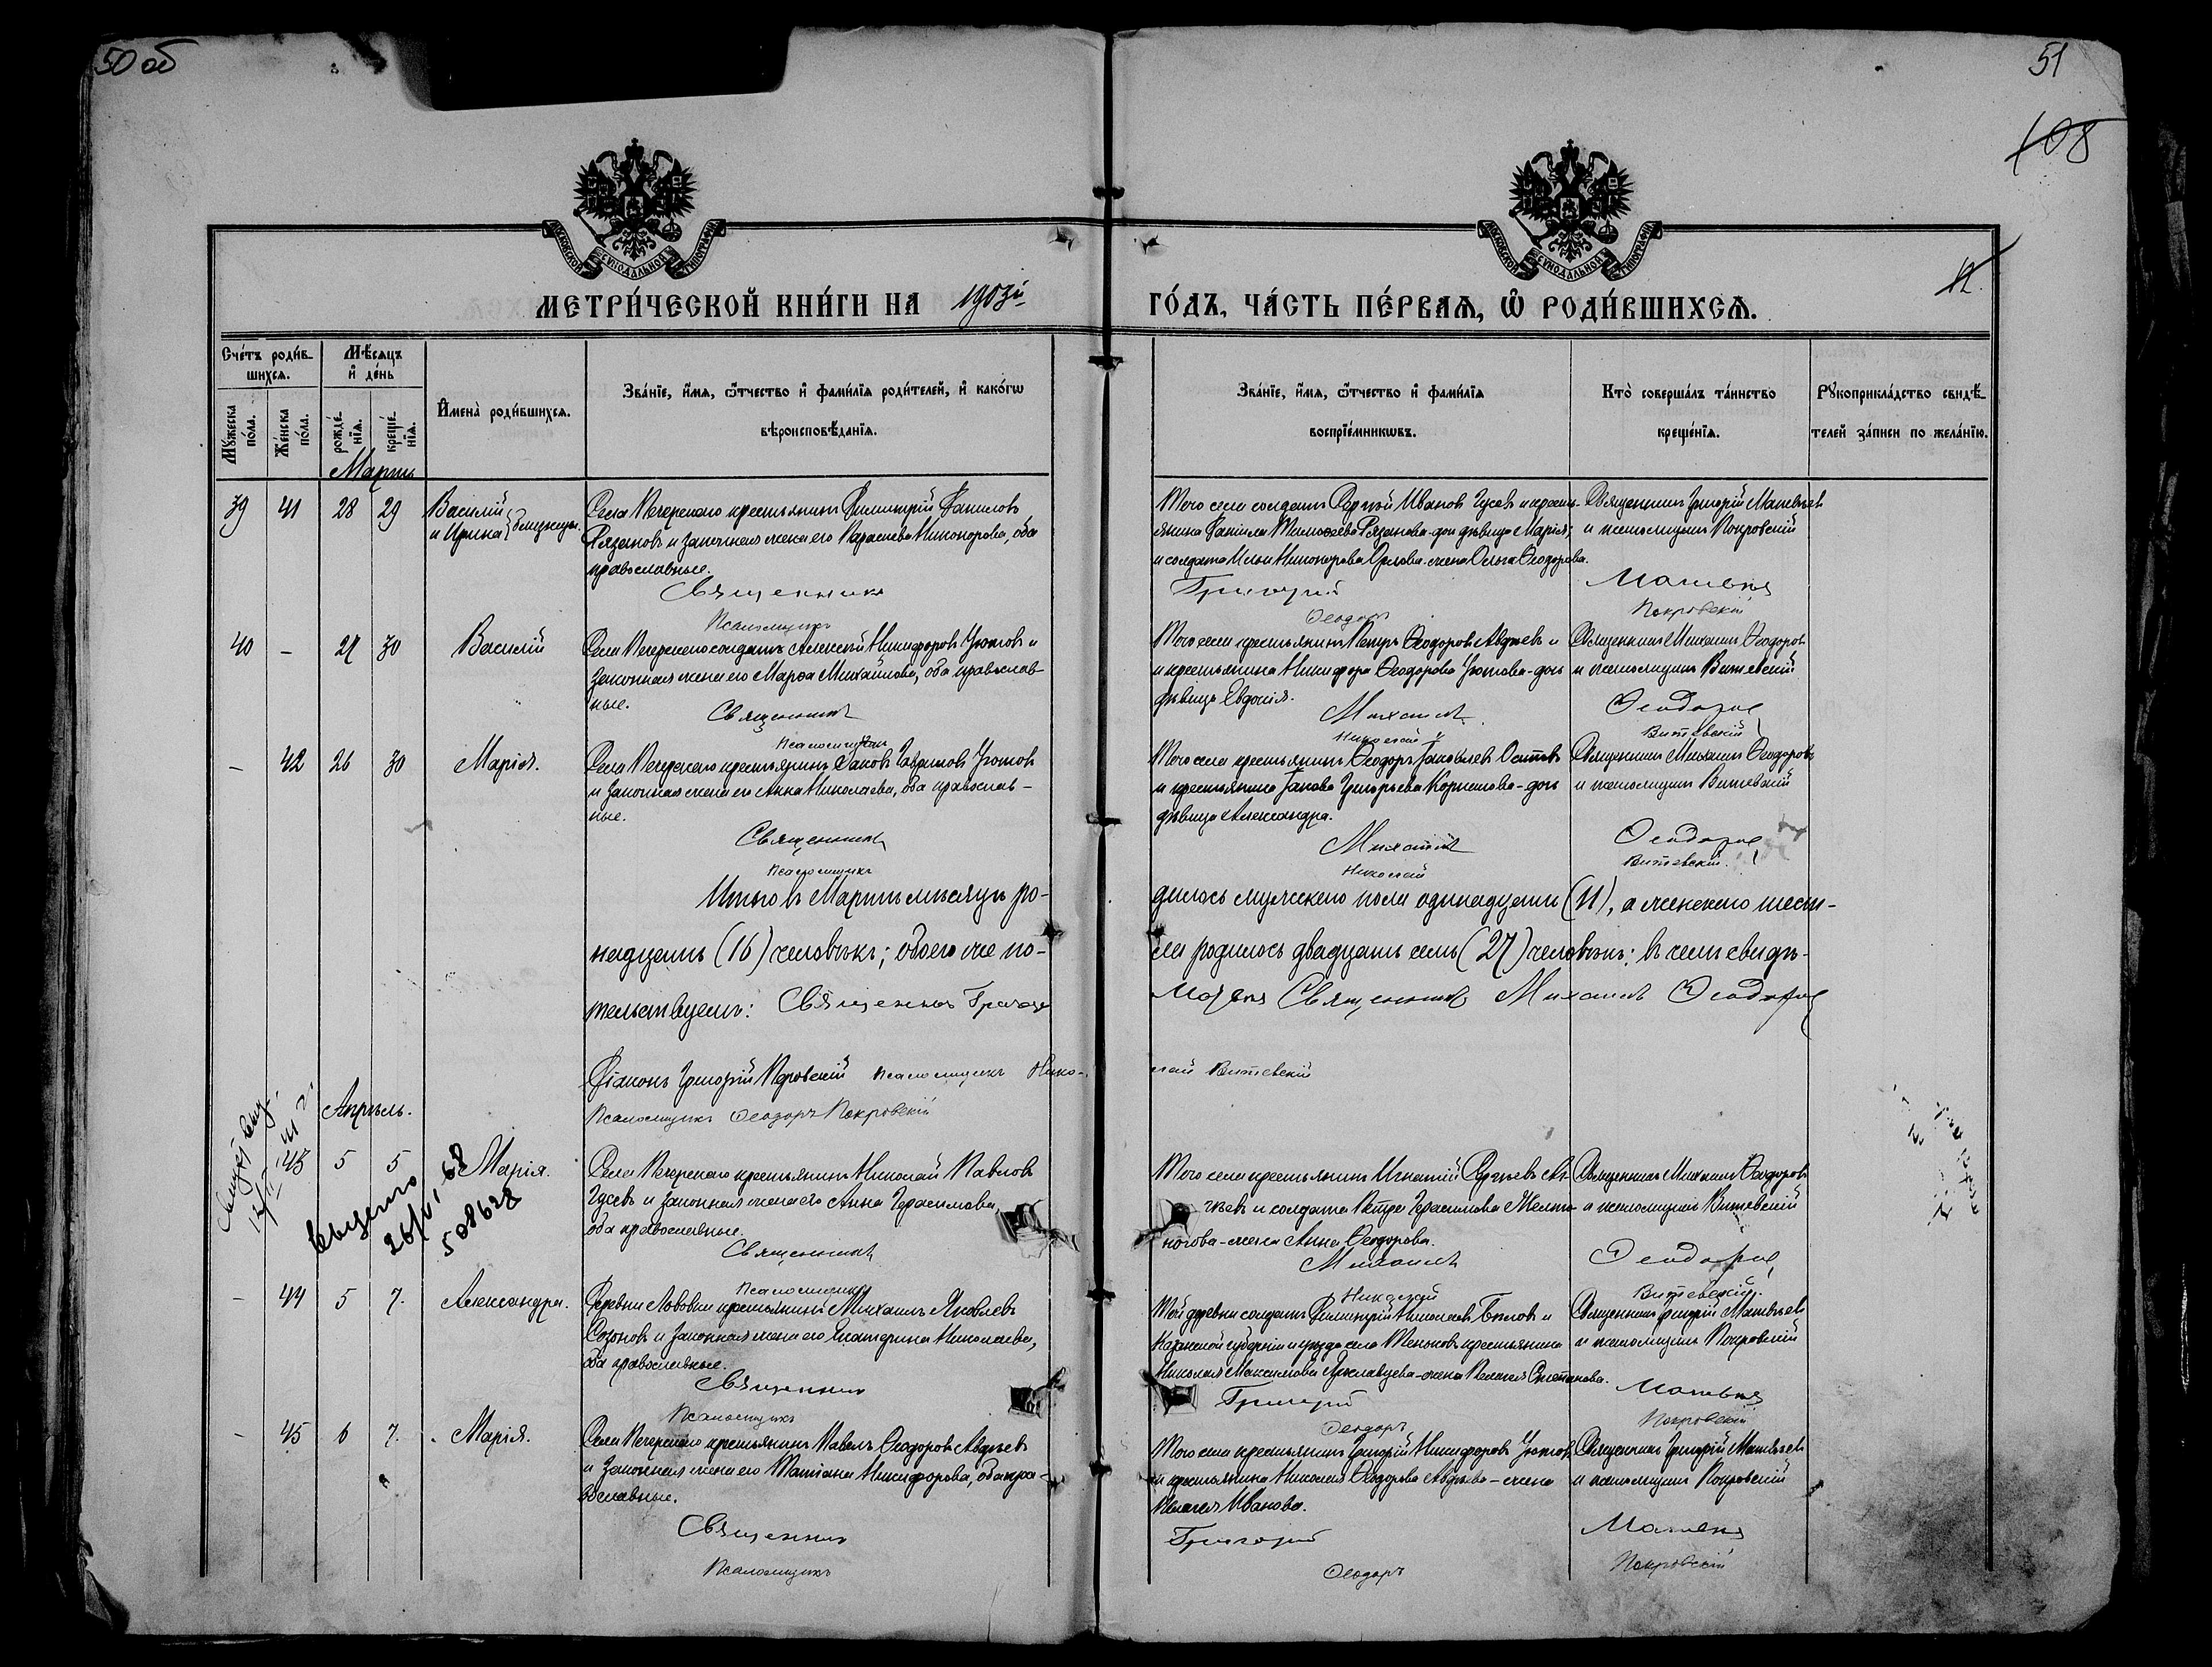 50 об
51
108
12.
МЕТРИ́ЧЕСКОЙ КНИ́ГИ НА 1903й
ГО́ДЪ, ЧА́СТЬ ПЕ́РВАѦ, Ѿ РОДИ́ВШИХСѦ.
Сче́тъ роди́в-
шихсѧ.
Мѣ́сѧцъ
и҆ де́нь
Мꙋ́жеска
по́ла.
Же́нска
по́ла.
рожде́-
нїѧ.
креще́-
нїѧ.
И҆мена̀ роди́вшихсѧ.
Зва́нїе, и҆́мѧ, ѻ҆́тчество и҆ фами́лїѧ роди́телей, и҆ како́гѡ
вѣроисповѣ́данїѧ.
Зва́нїе, и҆́мѧ, ѻ҆́тчество и҆ фами́лїѧ
воспрїе́мникѡвъ.
Кто̀ соверша́лъ та́инство
креще́нїѧ.
Рꙋкоприкла́дство свидѣ́-
телей за́писи по жела́нїю.
Мартъ
39 41 28 29 Василій
и Ирина близнецы.
Села Печерскаго крестьянинъ Димитрій Даниловъ
Рязановъ и законная жена его Параскева Никонорова, оба
православные.
Священникъ
Псаломщикъ
Того села солдатъ Сергѣй Ивановъ Гусевъ и кресть-
янина Данила Тимоѳеева Рязанова-дочь дѣвица Марія;
и солдата Ильи Никонорова Орлова-жена Ольга Ѳеодорова.
Григорій
Ѳеодоръ
Священникъ Григорій Матвѣевъ
и псаломщикъ Покровскій
Матвѣевъ
Покровскій
40 – 27 30 Василій
Села Печерскаго солдатъ Алексѣй Никифоровъ Утовъ и
законная жена его Марѳа Михайлова, оба православ-
ные.
Священникъ
Псаломщикъ
Того села крестьянинъ Петръ Ѳеодоровъ Авдѣевъ и
и крестьянина Никифора Ѳеодорова Утова-дочь
дѣвица Евдокія.
Михаилъ
Николай
Священникъ Михаилъ Ѳеодоровъ
и псаломщикъ Витевскій
Ѳеодоровъ
Витевскій
– 42 26 30 Марія.
Села Печерскаго крестьянинъ Іаковъ Гавриловъ Утовъ
и законная жена его Анна Николаева, оба православ-
ные.
Священникъ
Псаломщикъ
Того села крестьянинъ Ѳеодоръ Іаковлевъ Осиповъ
и крестьянина Іакова Григорьева Корнилова-дочь
дѣвица Александра.
Михаилъ
Николай
Священникъ Михаилъ Ѳеодоровъ
и псаломщикъ Витевскій
Ѳеодоровъ
Витевскій
Итого въ Мартѣ мѣсяцѣ ро-
дилось мужескаго пола одинадцать (11), а женскаго шест-
надцать (16) человѣкъ; обоего же по-
ла родилось двадцать семь (27) человѣкъ: въ чемъ свидѣ-
тельствуемъ: Священникъ Григорій
Матвѣевъ Священникъ Михаилъ Ѳеодоровъ
Діаконъ Григорій Перовскій Псаломщикъ Нико-
лай Витевскій
Псаломщикъ Ѳеодоръ Покровскій
Апрѣль.
43 5 5 Марія.
26/VI 68
508628
Села Печерскаго крестьянинъ Николай Павловъ
Гусевъ и законная жена его Анна Герасимова,
оба православные.
Священникъ
Псаломщикъ
Того села крестьянинъ Игнатій Сергѣевъ
и солдата Петра Герасимова
ногова-жена Анна Ѳеодорова.
Михаилъ
Николай
Священникъ Михаилъ Ѳеодоровъ
и псаломщикъ Витевскій
Ѳеодоровъ
Витевскій
– 44 5 7. Александра.
Деревни крестьянинъ Михаилъ Яковлевъ
Созоновъ и законная жена его Екатерина Николаева,
оба православные.
Священникъ
Псаломщикъ
Той деревни солдатъ Димитрій Николаевъ Бѣловъ и
Казанской губерніи и уѣзда села Теньковъ крестьянина
Николая Максимова Ярославцева-жена Пелагія Степанова.
Григорій
Ѳеодоръ
Священникъ Григорій Матвѣевъ
и псаломщикъ Покровскій
Матвѣевъ
Покровскій
– 45 6 7. Марія.
Села Печерскаго крестьянинъ Павелъ Ѳеодоровъ Авдѣевъ
и законная жена его Татіана Никифорова, оба пра-
вославные.
Священникъ
Псаломщикъ
Того села крестьянинъ Григорій Никифоровъ Утовъ
и крестьянина Николая Ѳеодорова Авдѣева-жена
Пелагея Иванова.
Григорій
Ѳеодоръ
Священникъ Григорій Матвѣевъ
и псаломщикъ Покровскій
Матвѣевъ
Покровскій